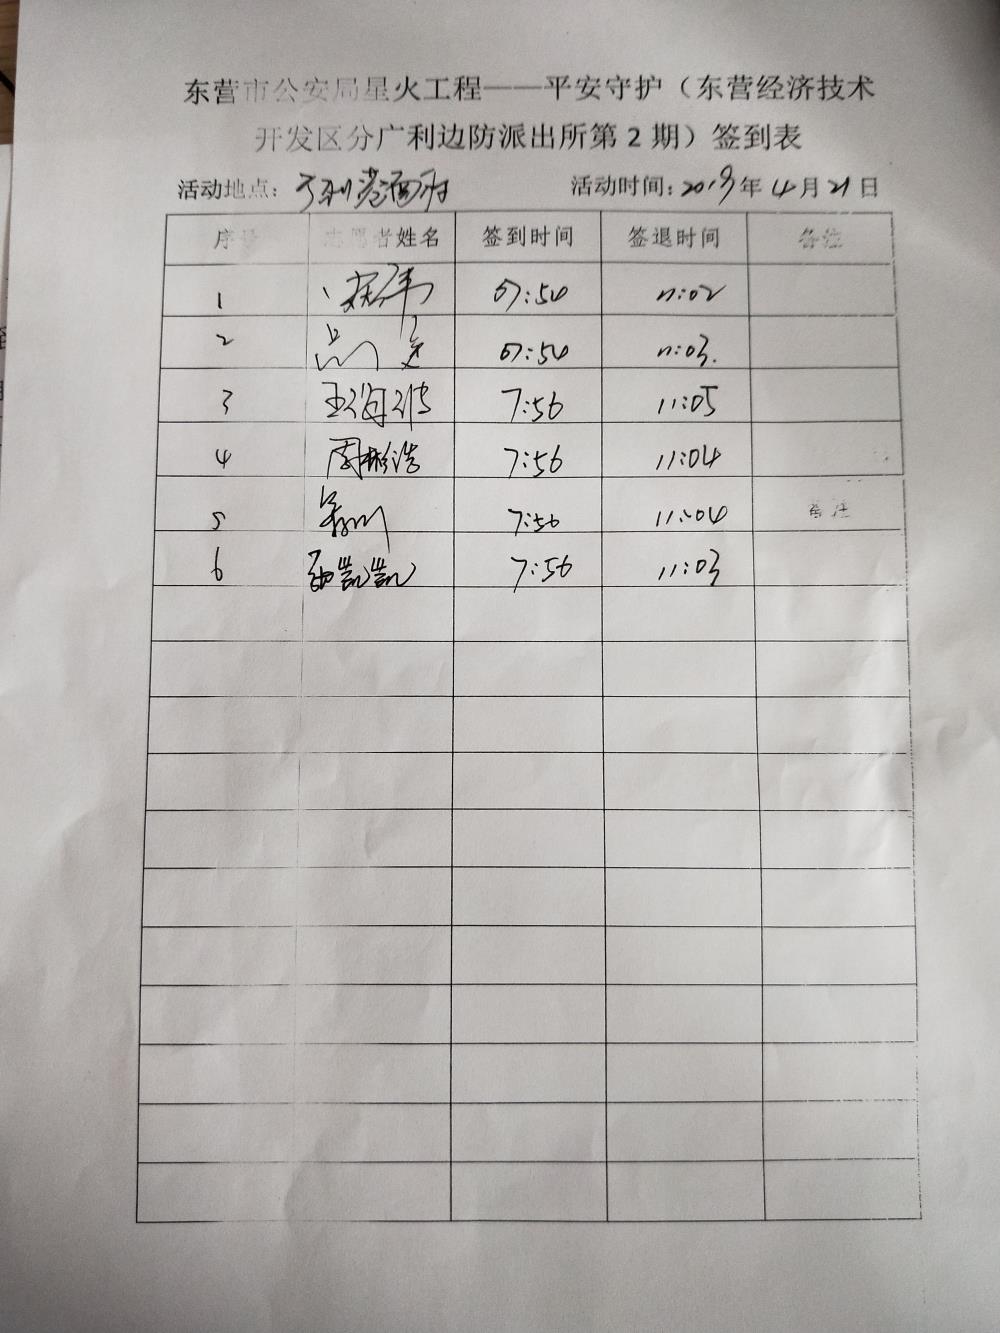 东营市公安局星火工程——平安守护（东营经济技术
开发区分广利边防派出所第2期）签到表
活动地点：广利港 活动时间：2019年4月21日
序号 志愿者姓名 签到时间 签退时间 备注
1 07:54 11:02
2 07:54 11:03.
3 王海波 7:56 11:05
4 周彬浩 7:56 11:04
5 7:56 11:04 备注
6 凯凯 7:56 11:03